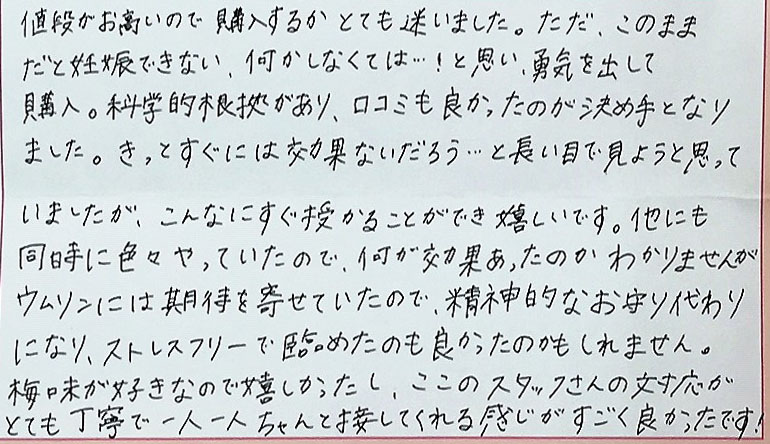 値段がお高いので購入するかとても迷いました。ただ、このまま
だと妊娠できない、何かしなくては…！と思い、勇気を出して
購入。科学的根拠があり、口コミも良かったのが決め手となり
ました。きっとすぐには効果ないだろう…と長い目で見ようと思って
いましたが、こんなにすぐ授かることができ嬉しいです。他にも
同時に色々やっていたので、何が効果あったのかわかりませんが
ウムリンには期待を寄せていたので、精神的なお守り代わり
になり、ストレスフリーで臨めたのも良かったのかもしれません。
梅味が好きなので嬉しかったし、ここのスタッフさんの対応が
とても丁寧で一人一人ちゃんと接してくれる感じがすごく良かったです！